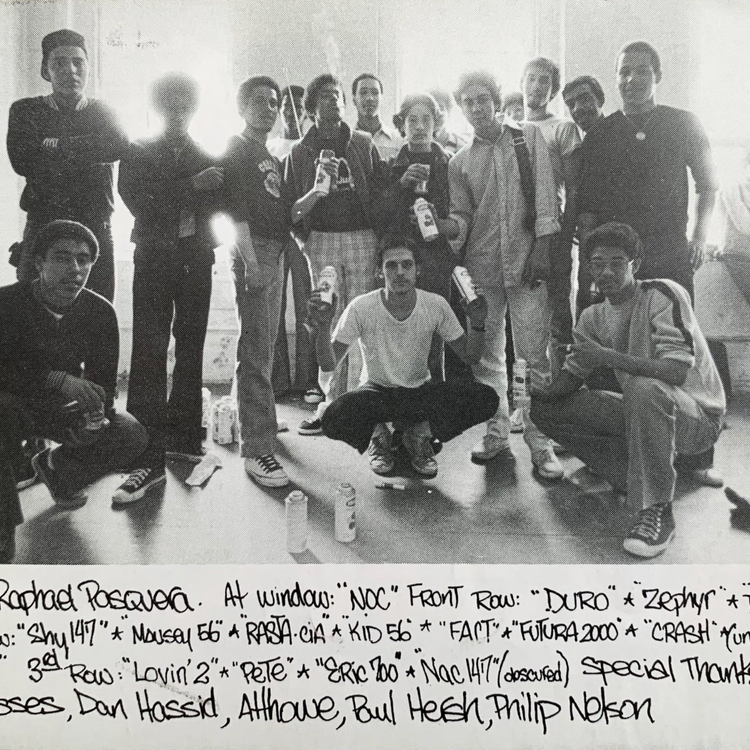 Raphael Pasquera. At window: "NOC" Front Row: "DURO" * "Zephyr" *
"Shy 147" * "Mousey 56" * "RASTA·CIA" * "KID 56" * "FACT" * "FUTURA 2000" * "CRASH"
3rd Row: "Lovin' 2" * "PeTe" * "ERic 700" * "Noc 147" (obscured) Special Thanks
sses, Dan Hassid, Al Howe, Paul Hersh, Philip Nelson